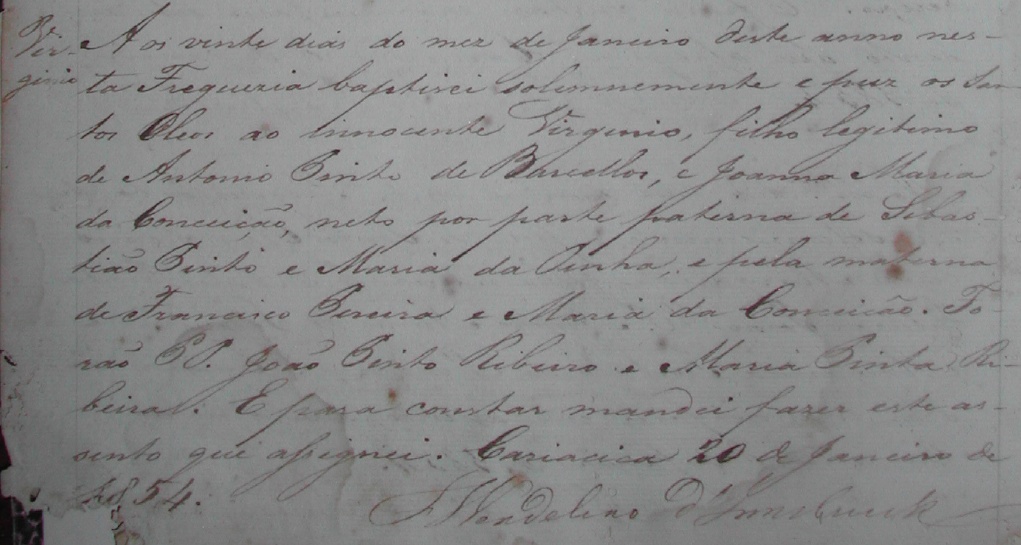 Vir-
ginio
Aos vinte dias do mez de Janeiro deste anno nes-
ta Freguezia baptisei solemnemente e puz os San-
tos Oleos ao innocente Virginio, filho legitimo
de Antonio Pinto de Barcellos, e Joanna Maria
da Conceição, neto por parte paterna de Sebas-
tião Pinto e Maria da Penha, e pela materna
de Francisco Pereira e Maria da Conceição. Fo-
rão PP. João Pinto Ribeiro e Maria Pinta Ri-
beira. E para constar mandei fazer este as-
sento que assignei. Cariacica 20 de Janeiro de
1854.
Fr Wendelino d'Innsbruck